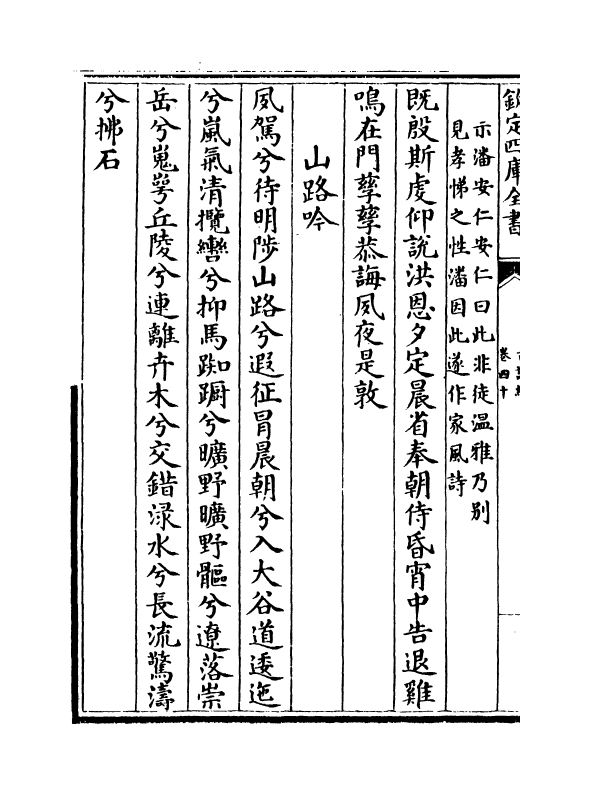 欽定四庫全書
卷四十
示潘安仁安仁曰此非徒温雅乃别
見孝悌之性潘因此遂作家風詩
既殷斯䖍仰說洪恩夕定晨省奉朝侍昏宵中告退雞
鳴在門孳孳恭誨夙夜是敦
山路吟
夙駕兮待明陟山路兮遐征冐晨朝兮入大谷道逶迤
兮嵐氣清攬轡兮抑馬踟蹰兮曠野曠野䮽兮遼落崇
岳兮嵬崿丘陵兮連離卉木兮交錯渌水兮長流驚濤
兮拂石